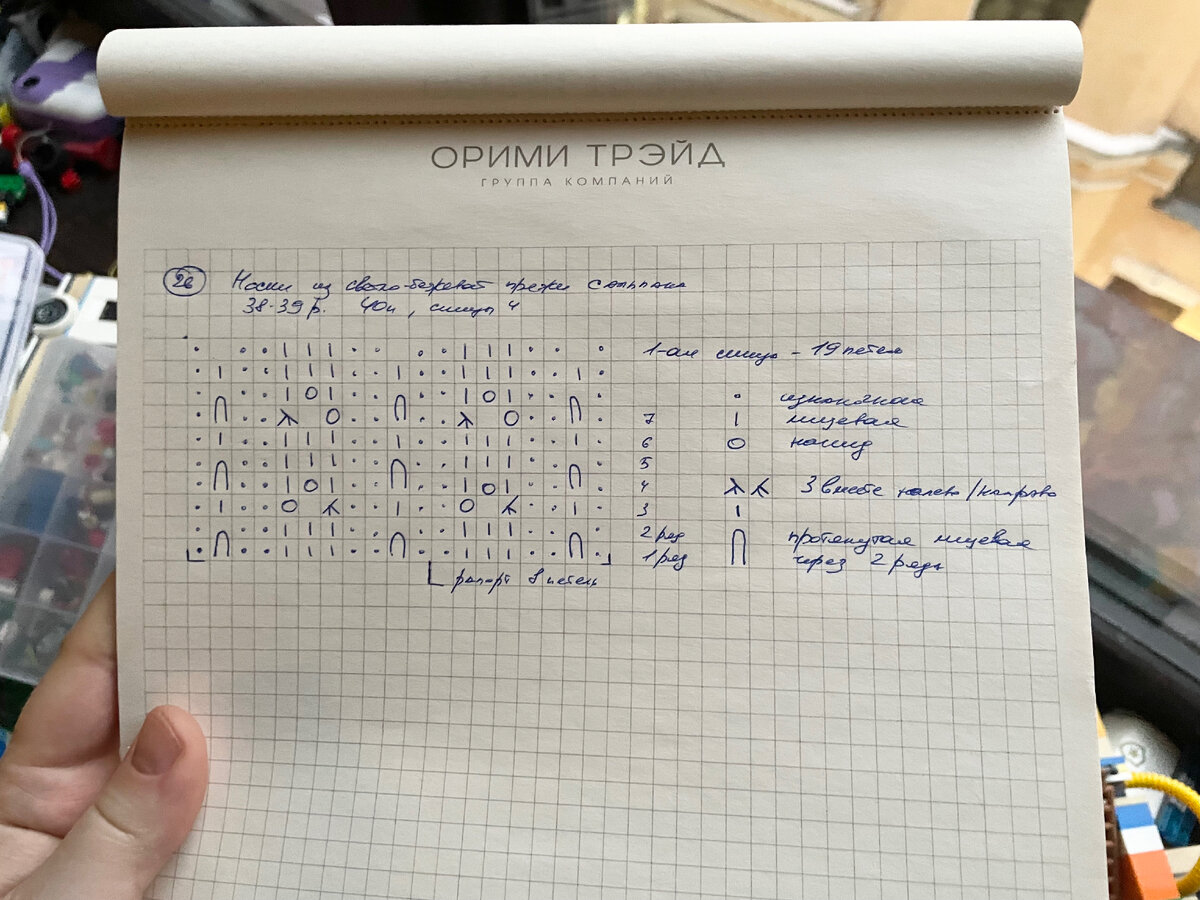 ОРИМИ ТРЭЙД
ГРУППА КОМПАНИЙ
26 Носки из свого-бежеват пряжи
38-39 р. 40п, спицы 4
1-ая спица - 19 петель
• изнаночная
7 | лицевая
6 O накид
5
4 λ 3 вместе налево/направо
3
2 ряд ∩ протянутая лицевая
1 ряд через 2 ряда
рапорт 8 петель